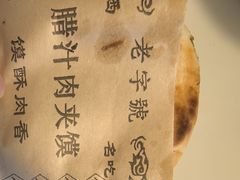 老字號
名吃
腊汁肉夹馍
馍酥肉香